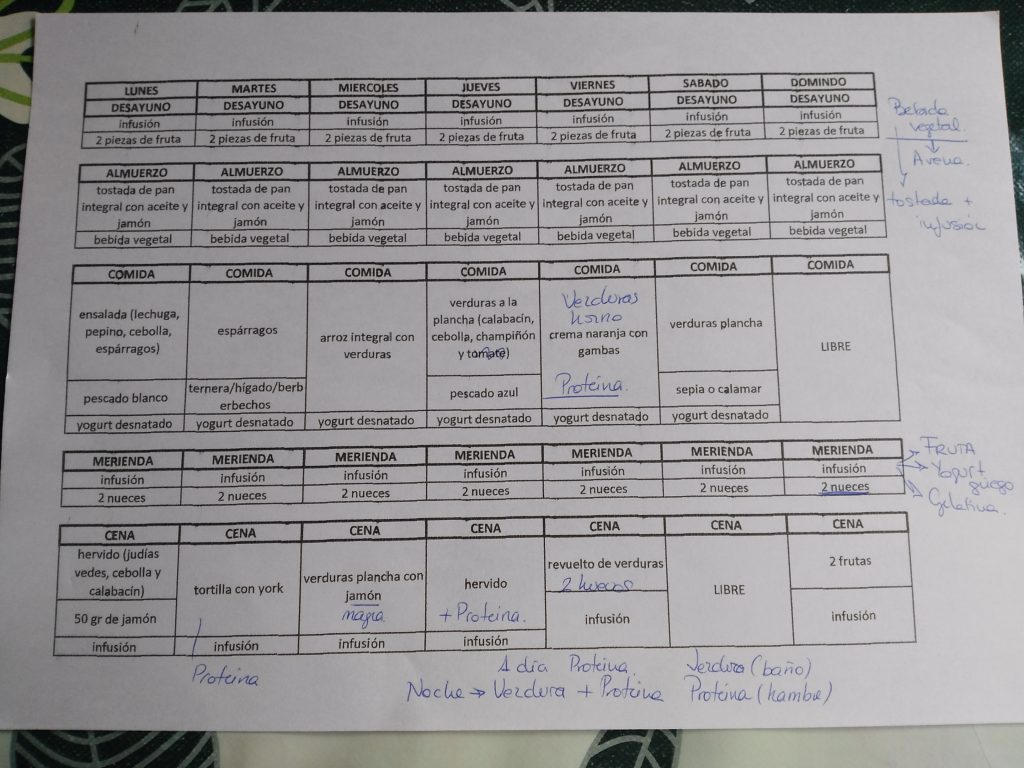 LUNES MARTES MIERCOLES JUEVES VIERNES SABADO DOMINDO
DESAYUNO DESAYUNO DESAYUNO DESAYUNO DESAYUNO DESAYUNO DESAYUNO
infusión infusión infusión infusión infusión infusión infusión
2 piezas de fruta 2 piezas de fruta 2 piezas de fruta 2 piezas de fruta 2 piezas de fruta 2 piezas de fruta 2 piezas de fruta
Bebida
vegetal.
Avena.
tostada +
infusión
ALMUERZO ALMUERZO ALMUERZO ALMUERZO ALMUERZO ALMUERZO ALMUERZO
tostada de pan tostada de pan tostada de pan tostada de pan tostada de pan tostada de pan tostada de pan
integral con aceite y integral con aceite y integral con aceite y integral con aceite y integral con aceite y integral con aceite y integral con aceite y
jamón jamón jamón jamón jamón jamón jamón
bebida vegetal bebida vegetal bebida vegetal bebida vegetal bebida vegetal bebida vegetal bebida vegetal
COMIDA COMIDA COMIDA COMIDA COMIDA COMIDA COMIDA
ensalada (lechuga,
pepino, cebolla,
espárragos)
pescado blanco
yogurt desnatado
espárragos
ternera/hígado/berb
erbechos
yogurt desnatado
arroz integral con
verduras
yogurt desnatado
verduras a la
plancha (calabacín,
cebolla, champiñón
y tomate)
pescado azul
yogurt desnatado
Verduras
horno
crema naranja con
gambas
Proteína.
yogurt desnatado
verduras plancha
sepia o calamar
yogurt desnatado
LIBRE
MERIENDA MERIENDA MERIENDA MERIENDA MERIENDA MERIENDA MERIENDA
infusión infusión infusión infusión infusión infusión infusión
2 nueces 2 nueces 2 nueces 2 nueces 2 nueces 2 nueces 2 nueces
FRUTA
Yogurt
griego
Gelatina.
CENA CENA CENA CENA CENA CENA CENA
hervido (judías
vedes, cebolla y
calabacín)
50 gr de jamón
infusión
tortilla con york
infusión
Proteína
verduras plancha con
jamón
magra
infusión
hervido
+ Proteína.
infusión
revuelto de verduras
2 huevos
infusión
LIBRE
2 frutas
infusión
1 día Proteína. Verdura (baño)
Noche → Verdura + Proteína Proteína (hambre)